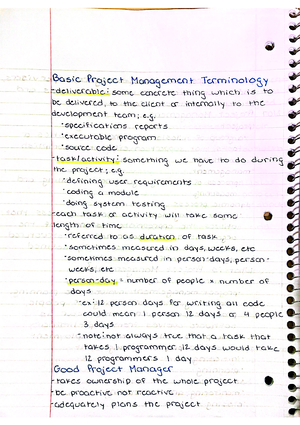 Basic Project Management Terminology
-deliverable: some concrete thing which is to
be delivered, to the client or internally to the
development team; e.g.
•specifications reports
•executable program
•source code
-task/activity: something we have to do during
the project; e.g.
•defining user requirements
•coding a module
•doing system testing
-each task or activity will take some
length of time
•referred to as duration of task
•sometimes measured in days, weeks, etc
•sometimes measured in person-days, person-
weeks, etc
•person-day = number of people × number of
days
•ex: 12 person days for writing all code
could mean 1 person 12 days or 4 people
3 days
•note: not always true that a task that
takes 1 programmer 12 days would take
12 programmers 1 day
Good Project Manager
-takes ownership of the whole project
-be proactive not reactive
-adequately plans the project